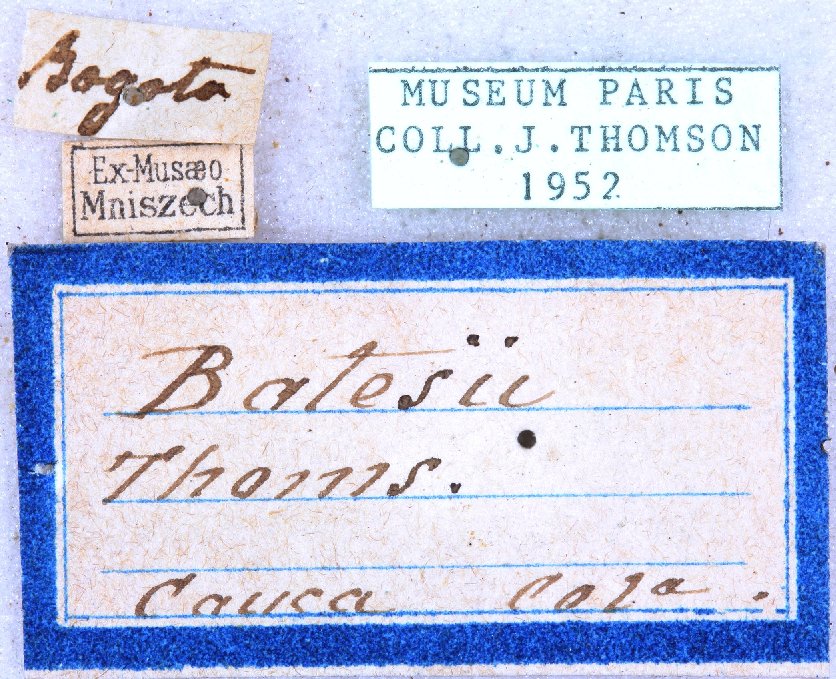 Bogota
Ex-Musæo
Mniszech
MUSEUM PARIS
COLL.J.THOMSON
1952
Batesii
Thoms.
Cauca Cola.